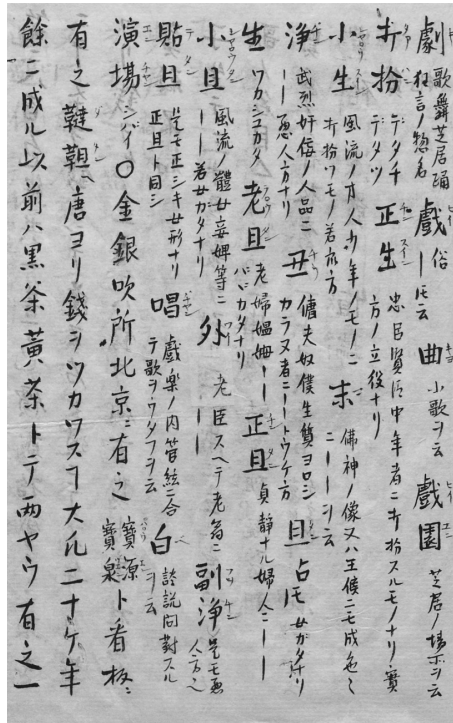 劇 歌舞芝居踊 狂言ノ惣名 戲 俗ーモ云 曲 小歌ヲ云 戲園 芝居ノ場所ヲ云
打扮 デタチ デタツ 正生 忠臣賢臣中年者ニ打扮スルモノナリ實方ノ立役ナリ
小生 風流ノ才人少年ノモノニ打扮ワモノ若衆方 末 佛神ノ像又ハ王侯ニモ成色々ニーーヲ云
浄 武烈奸佞ノ人品ニーー悪人方ナリ 丑 傭夫奴僕生質ヨロシカラヌ者ニートウケ方 旦 占モ女ガタ斗リ
生 ワカシユカタ 老旦 老婦媼姆ーーババカタナリ 正旦 貞静ナル婦人ニーー
小旦 風流ノ艶女妾婢等ニーー若女ガタナリ 外 老臣スヘテ老翁ニーー 副浄 是モ悪人方ヘ
貼旦 是モ正シキ女形ナリ正旦ト同シ 唱 戲樂ノ内管絃ニ合テ歌ヲウタフヲ云 白 談説問對スルヲ云
演場 シバイ ○金銀吹所北京ニ有之 寳源 寳泉 ト看板ニ
有之韃靼ヘ唐ヨリ錢ヲツカワスヿ大凡二十ケ年
餘ニ成ル以前ハ黒茶黄茶トテ両ヤウ有之一